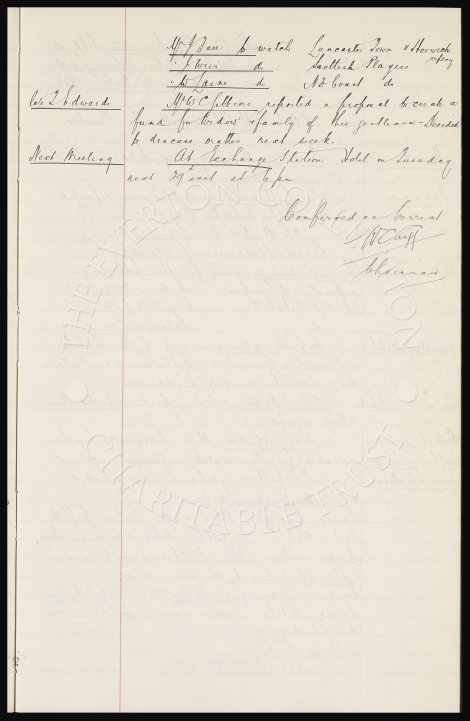 Mr J Bare to watch Lancaster Town v Horwich
" J Weir do Scottish Players
" W Laine do N E Coast do
Late L Edwards Mr W C Gibbins reported a proposal to create a
fund for widow & family of this gentleman - Decided
to discuss matter next week.
Next Meeting At Exchange Station Hotel on Tuesday
next 29 inst at 6 pm
Confirmed as Correct
W C Cuff
Chairman
THE EVERTON COLLECTION
CHARITABLE TRUST